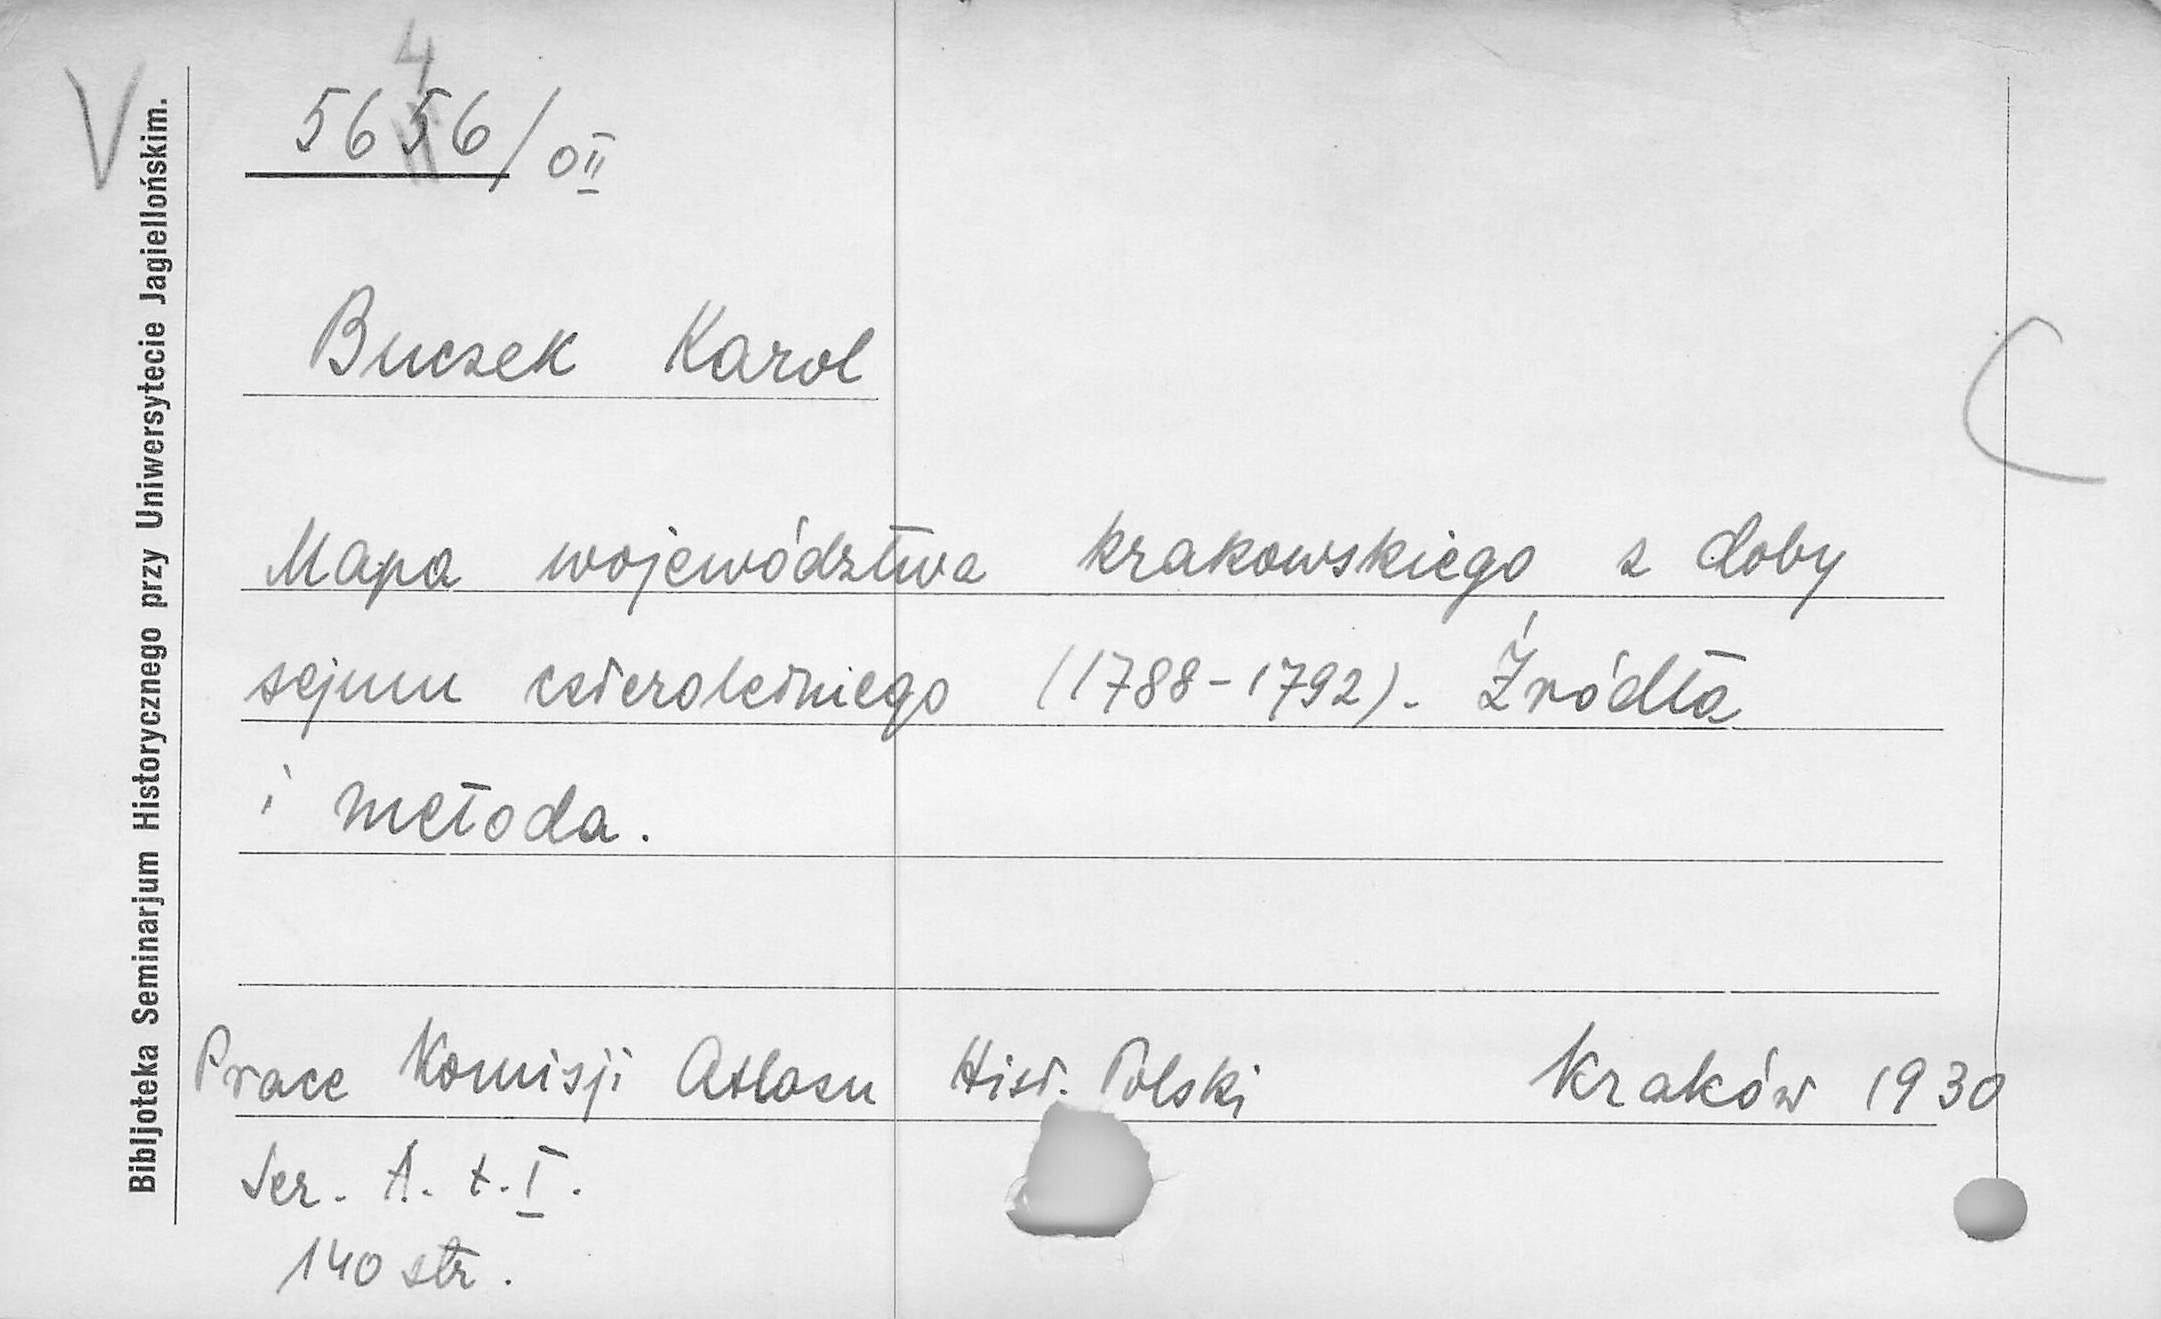 V
4
5656/OII
Buczek Karol
Mapa województwa krakowskiego z doby
sejmu czteroletniego (1788-1792). Źródła
i metoda.
Prace Komisji Atlasu Hist. Polski Kraków 1930
Ser. A. t. I.
140 str.
C
Bibljoteka Seminarjum Historycznego przy Uniwersytecie Jagiellońskim.